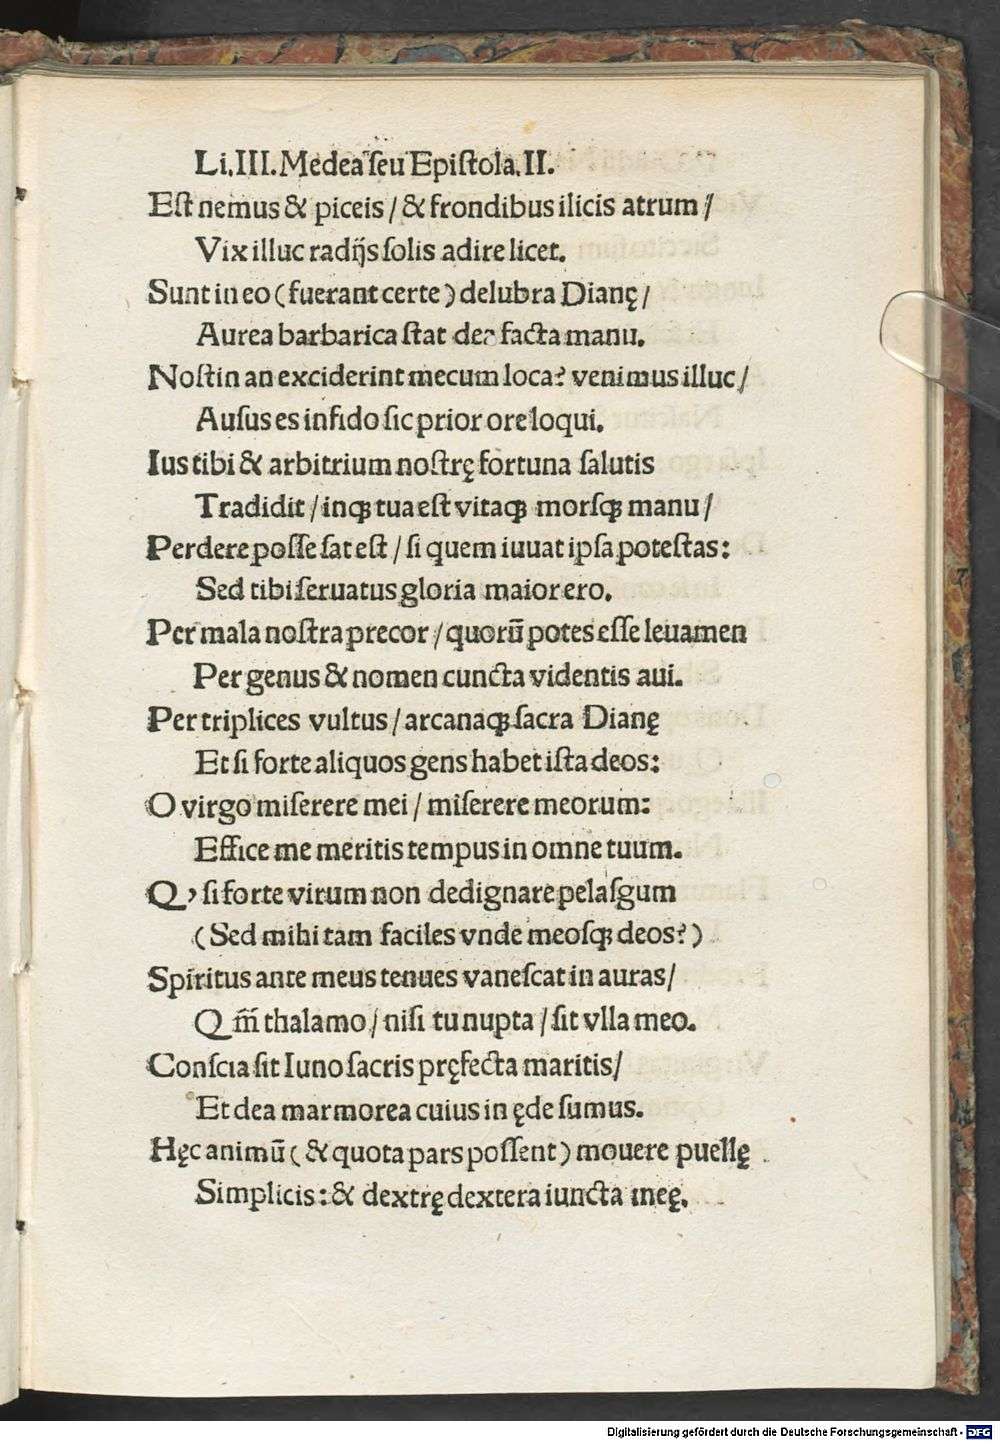 Li.III.Medea ſeu Epiſtola.II.
Eſt nemus & piceis / & frondibus ilicis atrum /
Vix illuc radijs ſolis adire licet.
Sunt in eo ( fuerant certe ) delubra Dianę /
Aurea barbarica ſtat dea facta manu.
Noſtin an exciderint mecum loca? venimus illuc /
Auſus es infido ſic prior ore loqui.
Ius tibi & arbitrium noſtrę fortuna ſalutis
Tradidit / inqꝫ tua eſt vitaqꝫ morſqꝫ manu /
Perdere poſſe ſat eſt / ſi quem iuuat ipſa poteſtas:
Sed tibi ſeruatus gloria maior ero.
Per mala noſtra precor / quorū potes eſſe leuamen
Per genus & nomen cuncta videntis aui.
Per triplices vultus / arcanaqꝫ ſacra Dianę
Et ſi forte aliquos gens habet iſta deos:
O virgo miſerere mei / miſerere meorum:
Effice me meritis tempus in omne tuum.
Qꝫ ſi forte virum non dedignare pelaſgum
( Sed mihi tam faciles vnde meoſqꝫ deos? )
Spiritus ante meus tenues vaneſcat in auras /
Q m̄ thalamo / niſi tu nupta / ſit vlla meo.
Conſcia ſit Iuno ſacris pręfecta maritis /
Et dea marmorea cuius in ęde ſumus.
Hęc animū ( & quota pars poſſent ) mouere puellę
Simplicis: & dextrę dextera iuncta meę.
Digitalisierung gefördert durch die Deutsche Forschungsgemeinschaft - DFG